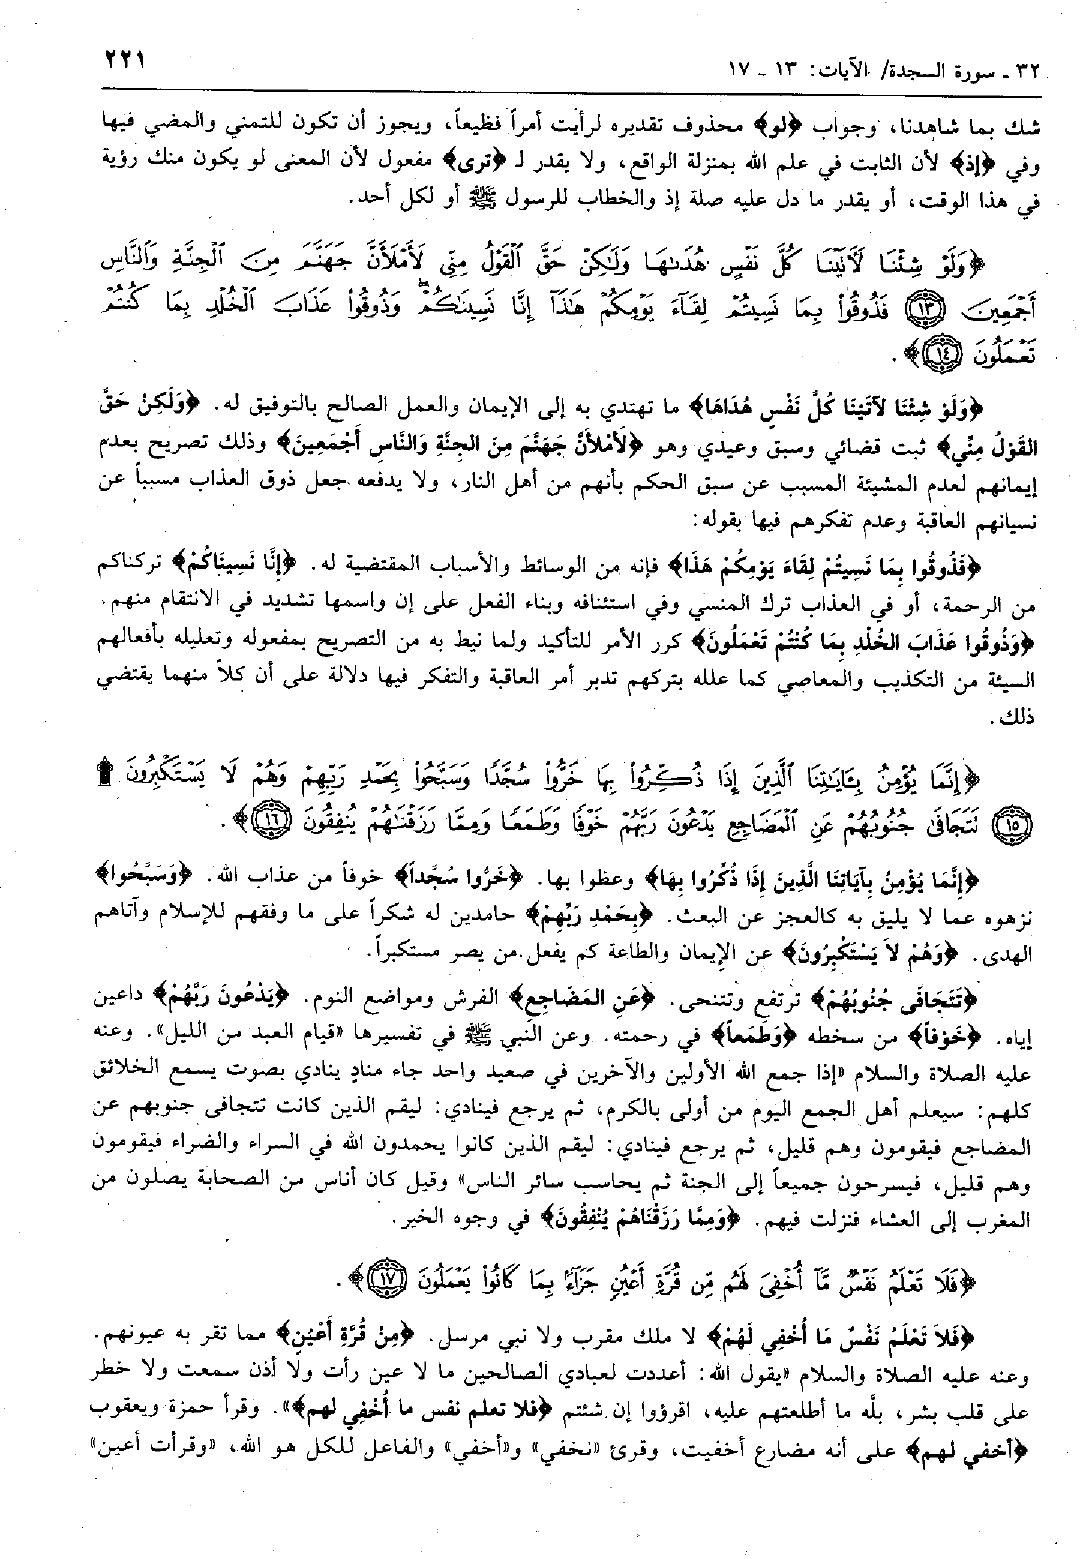 ٣٢ ـ سورة السجدة/ الآيات: ١٣ ـ ١٧
٢٢١
شك بما شاهدنا، وجواب ﴿لو﴾ محذوف تقديره لرأيت أمراً فظيعاً، ويجوز أن تكون للتمني والمضي فيها
وفي ﴿إذ﴾ لأن الثابت في علم الله بمنزلة الواقع، ولا يقدر لـ ﴿ترى﴾ مفعول لأن المعنى لو يكون منك رؤية
في هذا الوقت، أو يقدر ما دل عليه صلة إذ والخطاب للرسول ﷺ أو لكل أحد.
﴿وَلَوْ شِئْنَا لَآتَيْنَا كُلَّ نَفْسٍ هُدَىٰهَا وَلَٰكِنْ حَقَّ ٱلْقَوْلُ مِنِّي لَأَمْلَأَنَّ جَهَنَّمَ مِنَ ٱلْجِنَّةِ وَٱلنَّاسِ
أَجْمَعِينَ ﴿١٣﴾ فَذُوقُوا۟ بِمَا نَسِيتُمْ لِقَآءَ يَوْمِكُمْ هَٰذَآ إِنَّا نَسِينَٰكُمْ ۖ وَذُوقُوا۟ عَذَابَ ٱلْخُلْدِ بِمَا كُنتُمْ
تَعْمَلُونَ ﴿١٤﴾﴾.
﴿وَلَوْ شِئْنَا لآتَيْنَا كُلَّ نَفْسٍ هُدَاهَا﴾ ما تهتدي به إلى الإيمان والعمل الصالح بالتوفيق له. ﴿وَلَكِنْ حَقَّ
القَوْلُ مِنِّي﴾ ثبت قضائي وسبق وعيدي وهو ﴿لَأَمْلأَنَّ جَهَنَّمَ مِنَ الجِنَّةِ وَالنَّاسِ أَجْمَعِينَ﴾ وذلك تصريح بعدم
إيمانهم لعدم المشيئة المسبب عن سبق الحكم بأنهم من أهل النار، ولا يدفعه جعل ذوق العذاب مسبباً عن
نسيانهم العاقبة وعدم تفكرهم فيها بقوله:
﴿فَذُوقُوا بِمَا نَسِيتُمْ لِقَاءَ يَوْمِكُمْ هَذَا﴾ فإنه من الوسائط والأسباب المقتضية له. ﴿إِنَّا نَسِينَاكُمْ﴾ تركناكم
من الرحمة، أو في العذاب ترك المنسي وفي استئنافه وبناء الفعل على إن واسمها تشديد في الانتقام منهم.
﴿وَذُوقُوا عَذَابَ الخُلْدِ بِمَا كُنْتُمْ تَعْمَلُونَ﴾ كرر الأمر للتأكيد ولما نيط به من التصريح بمفعوله وتعليله بأفعالهم
السيئة من التكذيب والمعاصي كما علله بتركهم تدبر أمر العاقبة والتفكر فيها دلالة على أن كلاً منهما يقتضي
ذلك.
﴿إِنَّمَا يُؤْمِنُ بِـَٔايَٰتِنَا ٱلَّذِينَ إِذَا ذُكِّرُوا۟ بِهَا خَرُّوا۟ سُجَّدًا وَسَبَّحُوا۟ بِحَمْدِ رَبِّهِمْ وَهُمْ لَا يَسْتَكْبِرُونَ ۩
﴿١٥﴾ نَتَجَافَىٰ جُنُوبُهُمْ عَنِ ٱلْمَضَاجِعِ يَدْعُونَ رَبَّهُمْ خَوْفًا وَطَمَعًا وَمِمَّا رَزَقْنَٰهُمْ يُنفِقُونَ ﴿١٦﴾﴾.
﴿إِنَّمَا يُؤْمِنُ بِآيَاتِنَا الَّذِينَ إِذَا ذُكِّرُوا بِهَا﴾ وعظوا بها. ﴿خَرُّوا سُجَّداً﴾ خوفاً من عذاب الله. ﴿وَسَبَّحُوا﴾
نزهوه عما لا يليق به كالعجز عن البعث. ﴿بِحَمْدِ رَبِّهِمْ﴾ حامدين له شكراً على ما وفقهم للإسلام وآتاهم
الهدى. ﴿وَهُمْ لاَ يَسْتَكْبِرُونَ﴾ عن الإيمان والطاعة كم يفعل من يصر مستكبراً.
﴿تَتَجَافَى جُنُوبُهُمْ﴾ ترتفع وتتنحى. ﴿عَنِ المَضَاجِعِ﴾ الفرش ومواضع النوم. ﴿يَدْعُونَ رَبَّهُمْ﴾ داعين
إياه. ﴿خَوْفاً﴾ من سخطه ﴿وَطَمَعاً﴾ في رحمته. وعن النبي ﷺ في تفسيرها «قيام العبد من الليل». وعنه
عليه الصلاة والسلام «إذا جمع الله الأولين والآخرين في صعيد واحد جاء منادٍ ينادي بصوت يسمع الخلائق
كلهم: سيعلم أهل الجمع اليوم من أولى بالكرم، ثم يرجع فينادي: ليقم الذين كانت تتجافى جنوبهم عن
المضاجع فيقومون وهم قليل، ثم يرجع فينادي: ليقم الذين كانوا يحمدون الله في السراء والضراء فيقومون
وهم قليل، فيسرحون جميعاً إلى الجنة ثم يحاسب سائر الناس» وقيل كان أناس من الصحابة يصلون من
المغرب إلى العشاء فنزلت فيهم. ﴿وَمِمَّا رَزَقْنَاهُمْ يُنْفِقُونَ﴾ في وجوه الخير.
﴿فَلَا تَعْلَمُ نَفْسٌ مَّآ أُخْفِىَ لَهُم مِّن قُرَّةِ أَعْيُنٍ جَزَآءً بِمَا كَانُوا۟ يَعْمَلُونَ ﴿١٧﴾﴾.
﴿فَلاَ تَعْلَمُ نَفْسٌ مَا أُخْفِي لَهُمْ﴾ لا ملك مقرب ولا نبي مرسل. ﴿مِنْ قُرَّةِ أَعْيُنٍ﴾ مما تقر به عيونهم.
وعنه عليه الصلاة والسلام «يقول الله: أعددت لعبادي الصالحين ما لا عين رأت ولا أذن سمعت ولا خطر
على قلب بشر، بلّه ما أطلعتهم عليه، اقرؤوا إن شئتم ﴿فلا تعلم نفس ما أُخفي لهم﴾». وقرأ حمزة ويعقوب
﴿أخفي لهم﴾ على أنه مضارع أخفيت، وقرئ «نخفي» و«أخفي» والفاعل للكل هو الله، «وقرأت أعين»